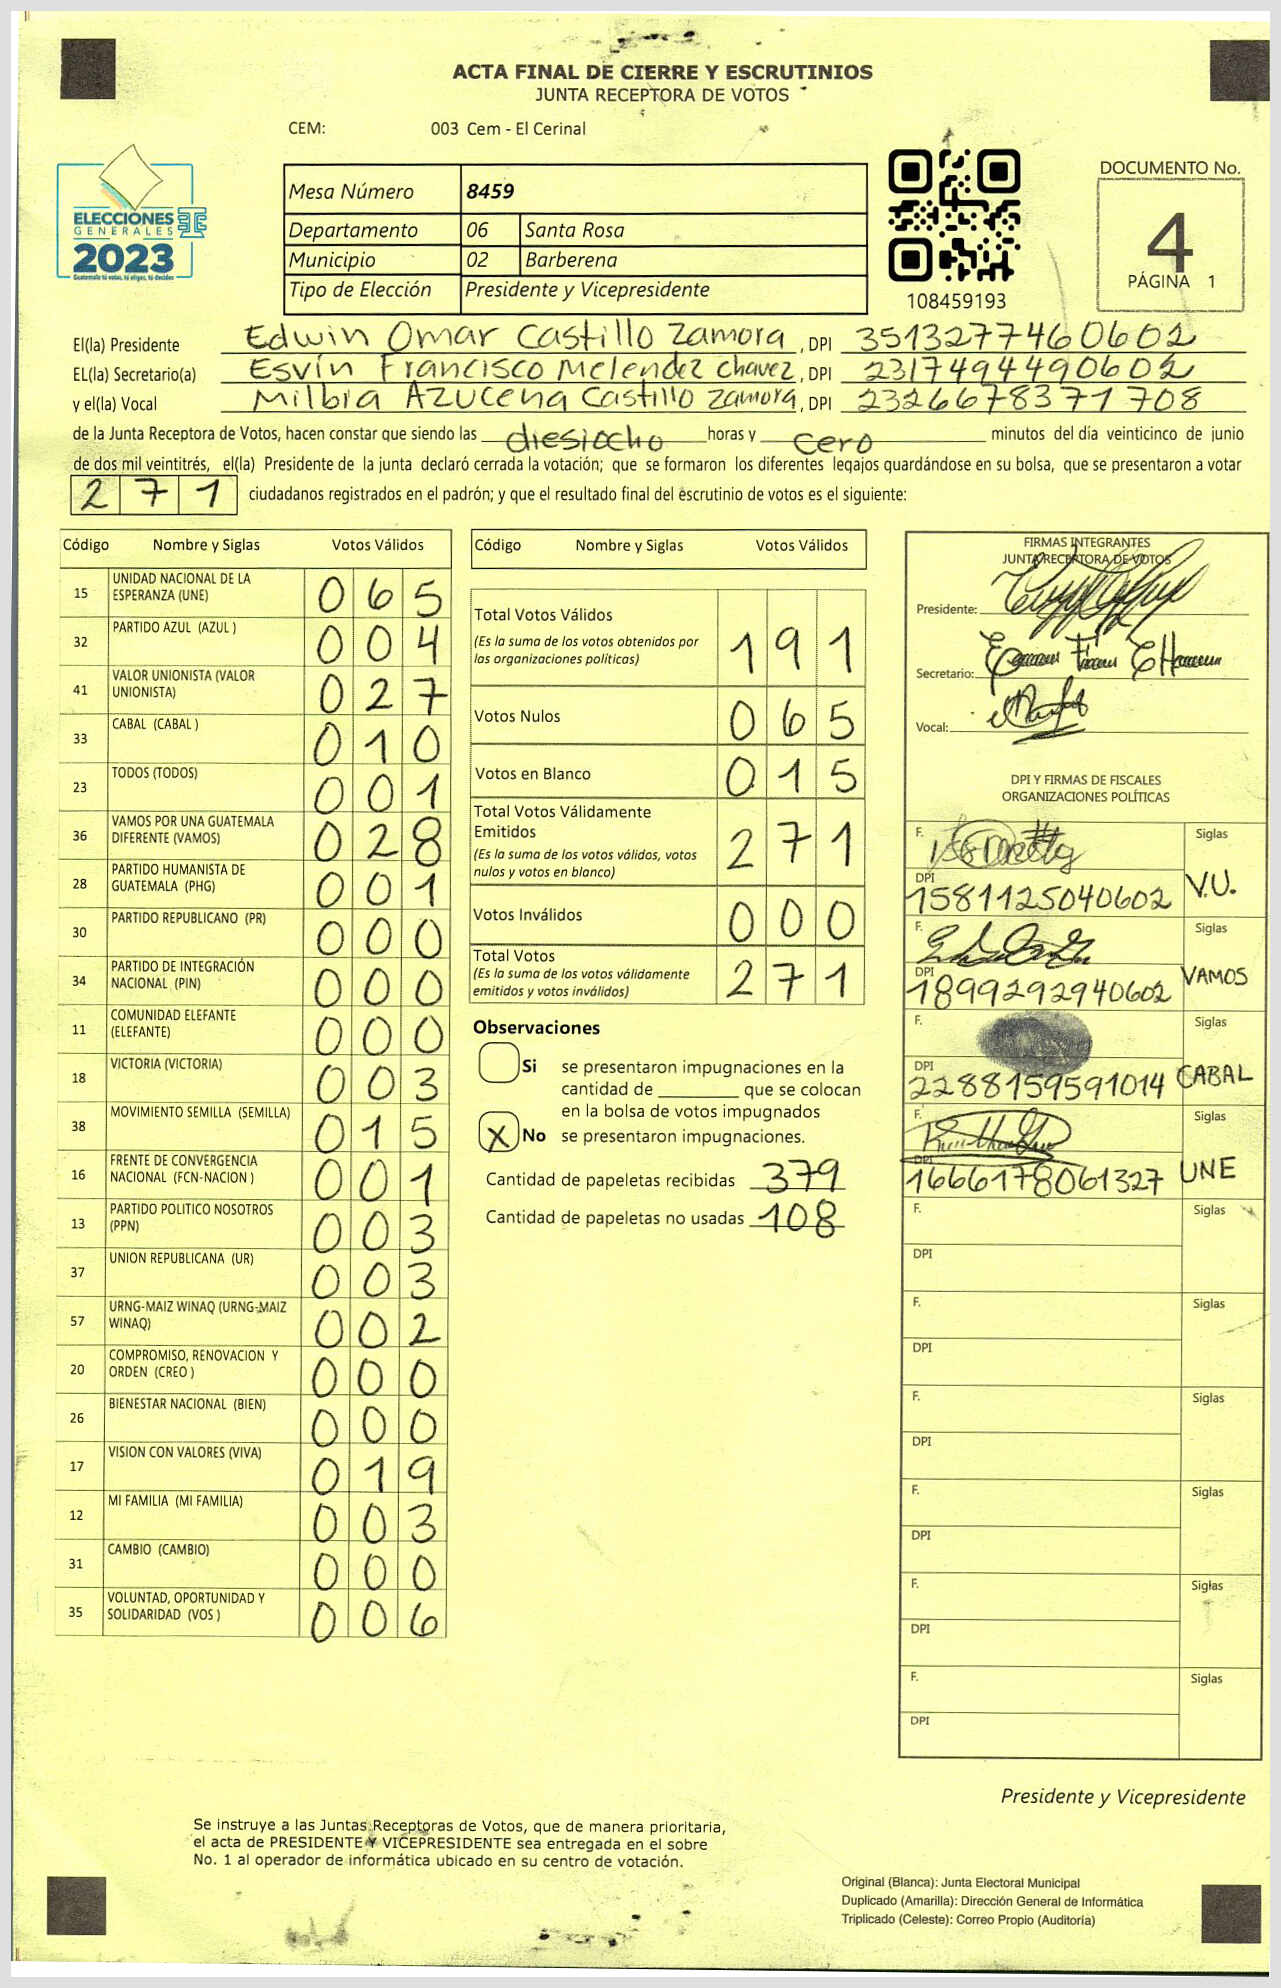 ACTA FINAL DE CIERRE Y ESCRUTINIOS
JUNTA RECEPTORA DE VOTOS
CEM: 003 Cem - El Cerinal
ELECCIONES
GENERALES
2023
Guatemala tú votas, tú eliges, tú decides
Mesa Número 8459
Departamento 06 Santa Rosa
Municipio 02 Barberena
Tipo de Elección Presidente y Vicepresidente
108459193
DOCUMENTO No.
4
PÁGINA 1
El(la) Presidente Edwin Omar Castillo Zamora, DPI 3513277460602
EL(la) Secretario(a) Esvín Francisco Melendez chavez, DPI 2317494490602
y el(la) Vocal Milbia Azucena Castillo Zamora, DPI 2326678371708
de la Junta Receptora de Votos, hacen constar que siendo las diesiocho horas y cero minutos del día veinticinco de junio
de dos mil veintitrés, el(la) Presidente de la junta declaró cerrada la votación; que se formaron los diferentes legajos quardándose en su bolsa, que se presentaron a votar
271 ciudadanos registrados en el padrón; y que el resultado final del escrutinio de votos es el siguiente:
Código Nombre y Siglas Votos Válidos
15 UNIDAD NACIONAL DE LA
ESPERANZA (UNE) 065
32 PARTIDO AZUL (AZUL ) 004
41 VALOR UNIONISTA (VALOR
UNIONISTA) 027
33 CABAL (CABAL ) 010
23 TODOS (TODOS) 001
36 VAMOS POR UNA GUATEMALA
DIFERENTE (VAMOS) 028
28 PARTIDO HUMANISTA DE
GUATEMALA (PHG) 001
30 PARTIDO REPUBLICANO (PR) 000
34 PARTIDO DE INTEGRACIÓN
NACIONAL (PIN) 000
11 COMUNIDAD ELEFANTE
(ELEFANTE) 000
18 VICTORIA (VICTORIA) 003
38 MOVIMIENTO SEMILLA (SEMILLA) 015
16 FRENTE DE CONVERGENCIA
NACIONAL (FCN-NACION ) 001
13 PARTIDO POLITICO NOSOTROS
(PPN) 003
37 UNION REPUBLICANA (UR) 003
57 URNG-MAIZ WINAQ (URNG-MAIZ
WINAQ) 002
20 COMPROMISO, RENOVACION Y
ORDEN (CREO ) 000
26 BIENESTAR NACIONAL (BIEN) 000
17 VISION CON VALORES (VIVA) 019
12 MI FAMILIA (MI FAMILIA) 003
31 CAMBIO (CAMBIO) 000
35 VOLUNTAD, OPORTUNIDAD Y
SOLIDARIDAD (VOS ) 006
Código Nombre y Siglas Votos Válidos
Total Votos Válidos
(Es la suma de los votos obtenidos por
las organizaciones políticas) 191
Votos Nulos 065
Votos en Blanco 015
Total Votos Válidamente
Emitidos
(Es la suma de los votos válidos, votos
nulos y votos en blanco) 271
Votos Inválidos 000
Total Votos
(Es la suma de los votos válidamente
emitidos y votos inválidos) 271
Observaciones
Si se presentaron impugnaciones en la
cantidad de ________ que se colocan
en la bolsa de votos impugnados
X No se presentaron impugnaciones.
Cantidad de papeletas recibidas 379
Cantidad de papeletas no usadas 108
FIRMAS INTEGRANTES
JUNTA RECEPTORA DE VOTOS
Presidente:
Secretario:
Vocal:
DPI Y FIRMAS DE FISCALES
ORGANIZACIONES POLÍTICAS
F. Siglas
DPI
1581125040602 V.U.
F. Siglas
DPI
1899292940602 VAMOS
F. Siglas
DPI
2288159591014 CABAL
F. Siglas
DPI
1666178061327 UNE
F. Siglas
DPI
F. Siglas
DPI
F. Siglas
DPI
F. Siglas
DPI
F. Siglas
DPI
F. Siglas
DPI
Presidente y Vicepresidente
Se instruye a las Juntas Receptoras de Votos, que de manera prioritaria,
el acta de PRESIDENTE Y VICEPRESIDENTE sea entregada en el sobre
No. 1 al operador de informática ubicado en su centro de votación.
Original (Blanca): Junta Electoral Municipal
Duplicado (Amarilla): Dirección General de Informática
Triplicado (Celeste): Correo Propio (Auditoría)